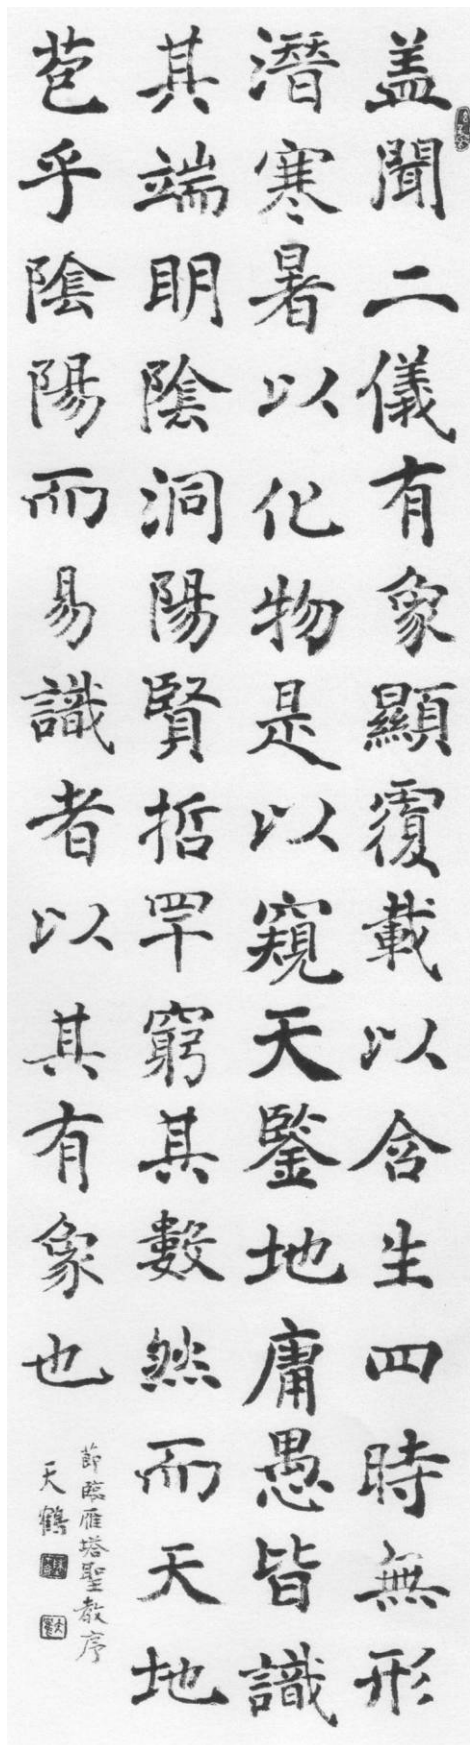 盖聞二儀有象顯覆載以含生四時無形
潛寒暑以化物是以窺天鑒地庸愚皆識
其端明陰洞陽賢哲罕窮其數然而天地
苞乎陰陽而易識者以其有象也
節臨雁塔聖教序
天鶴